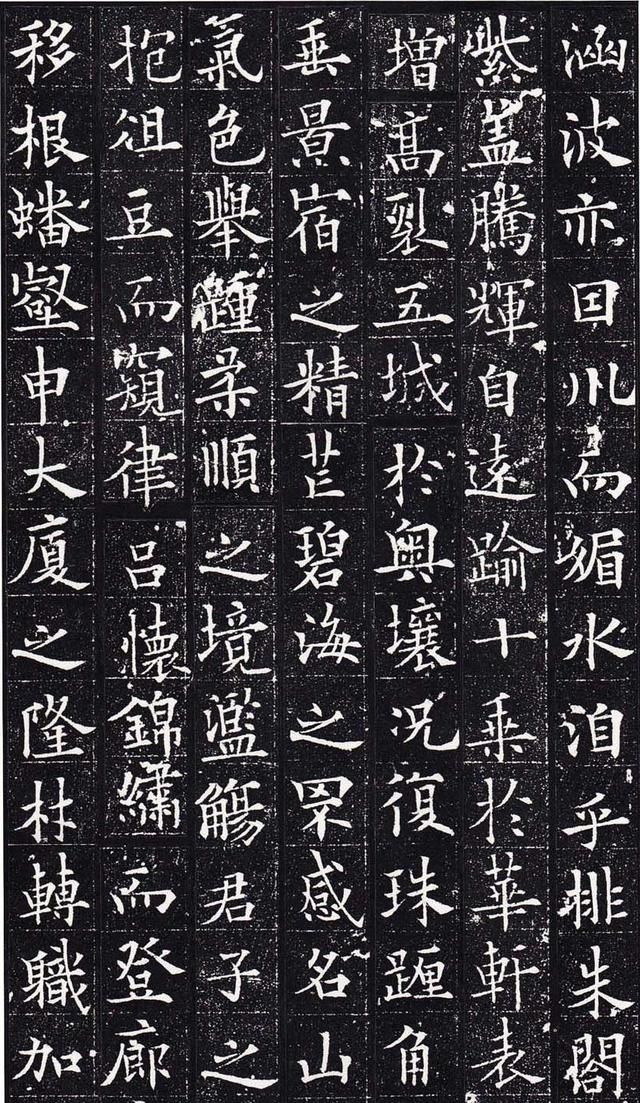 涵波亦囙川而媚水洎乎排朱閣
紫盖騰輝自遠踰十乘於華軒表
增髙裂五城於奥壤況復珠躔角
垂景宿之精芒碧海之感名山
氣色舉踵柔順之境濫觴君子之
抱俎豆而窺律呂懷錦繡而登廊
移根蟠壑申大廈之隆材轉職加